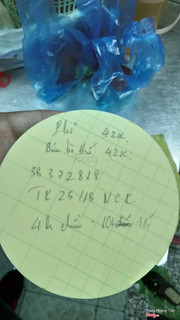 Phở 42k
Bún bò Huế 42k
38 372818
TK 25/18 NCK
4h chiều - 10h tối